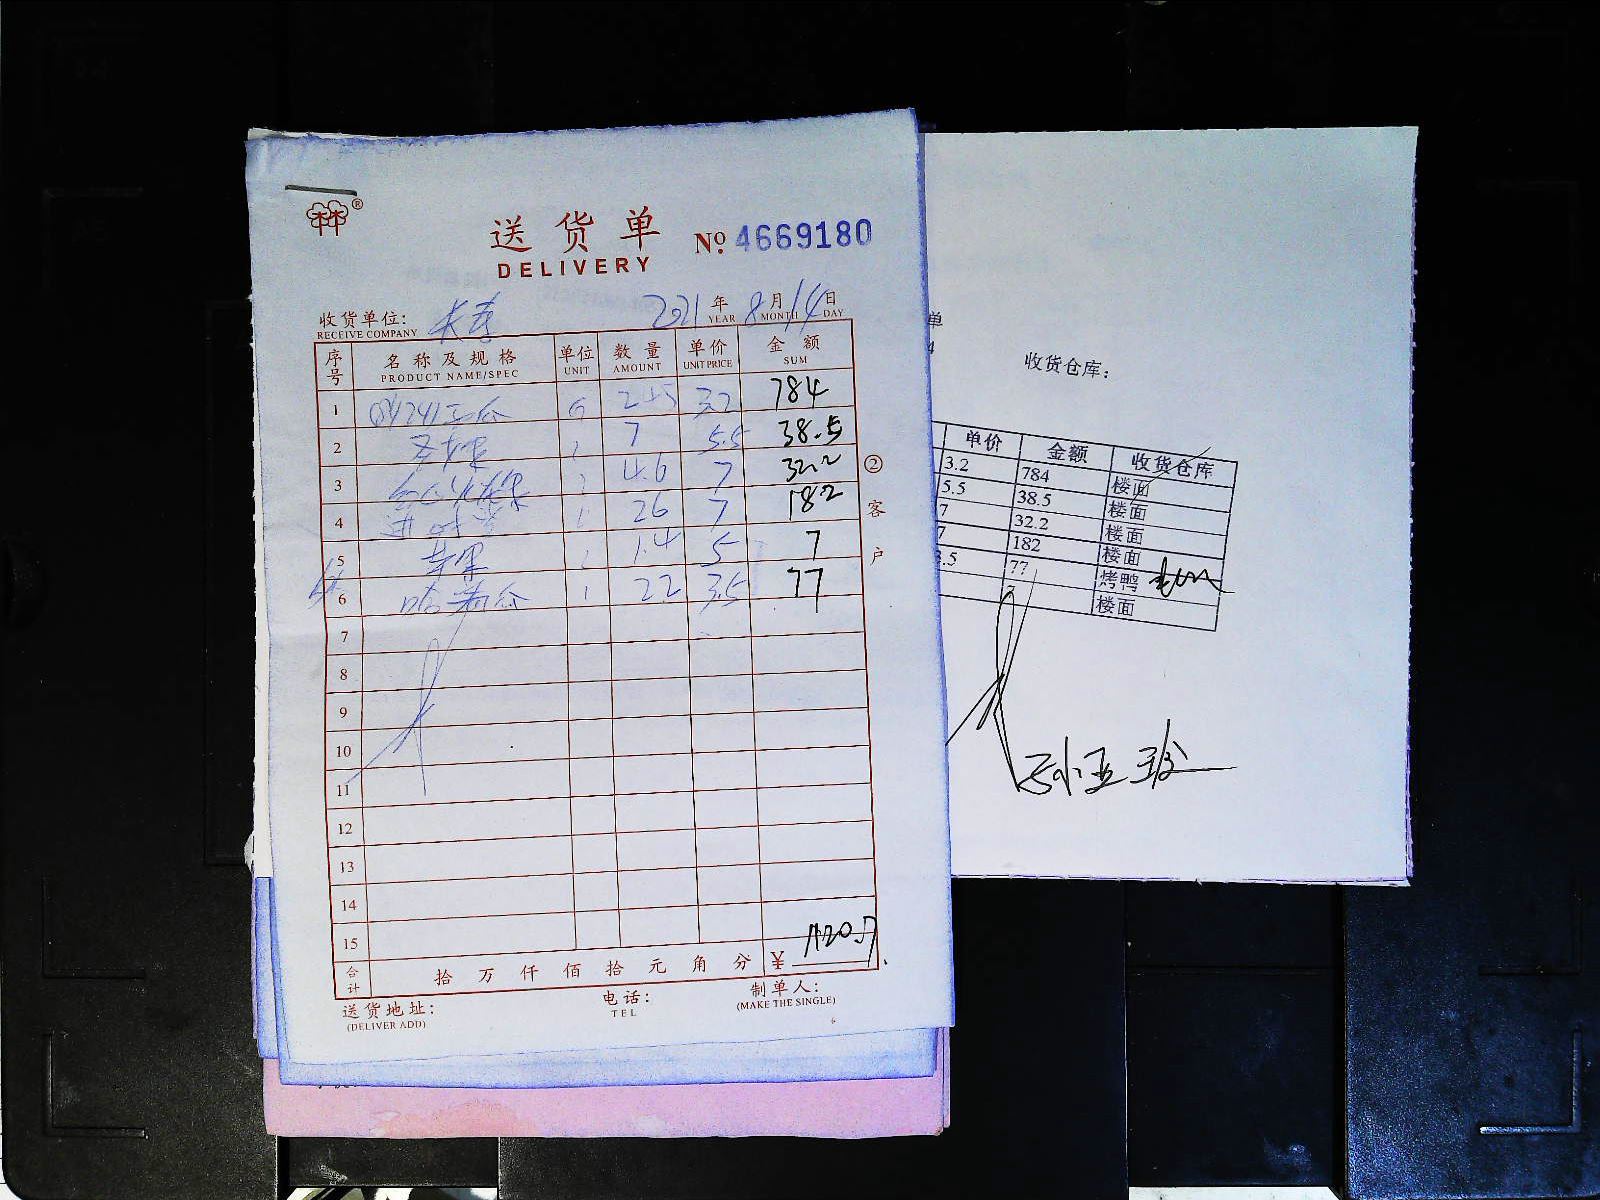 送货单 No. 4669180
DELIVERY
收货单位： 2021 年 8 月 14 日
RECEIVE COMPANY YEAR MONTH DAY
序号 名称及规格 单位 数量 单价 金额
PRODUCT NAME/SPEC UNIT AMOUNT UNIT PRICE SUM
1 245 3.2 784
2 7 5.5 38.5
3 4.6 7 32.2
4 26 7 182
5 苹果 1.4 5 7
6 哈蜜瓜 22 3.5 77
7
8
9
10
11
12
13
14
15
合计 拾 万 仟 佰 拾 元 角 分 ¥ 1120.7
送货地址： 电话： 制单人：
(DELIVER ADD) TEL (MAKE THE SINGLE)
② 客户
单
4
收货仓库：
单价 金额 收货仓库
3.2 784 楼面
5.5 38.5 楼面
7 32.2 楼面
7 182 楼面
3.5 77 烤鸭
楼面